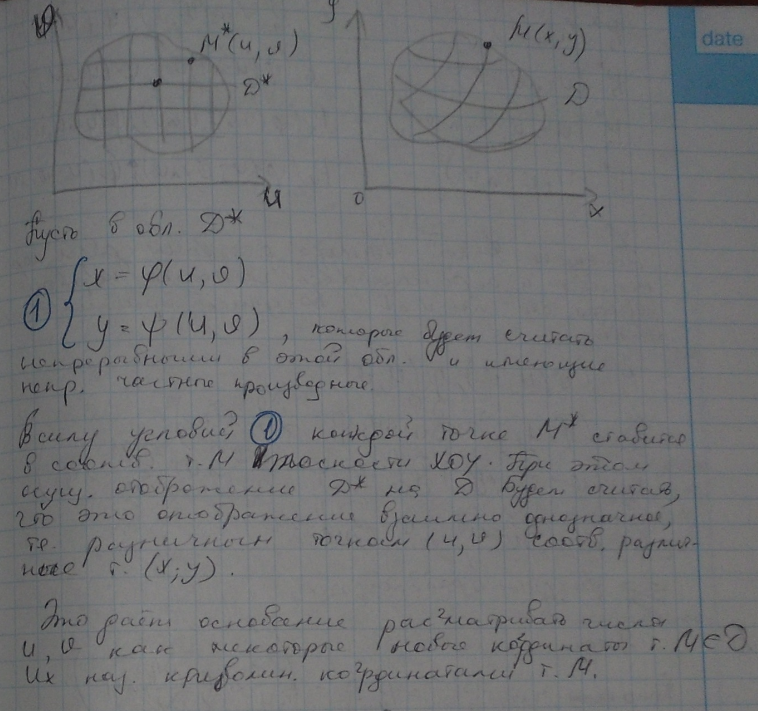 v y date
M*(u, v) M(x, y)
D* D
u 0 x
Пусть в обл. D*
1 { x = φ(u, v)
y = ψ(u, v), которые будем считать
непрерывными в этой обл. и имеющие
непр. частные производные.
В силу условий 1 каждой точке M* ставится
в соотв. т. M плоскости XOY. При этом
осущ. отображение D* на D Будем считать,
что это отображение взаимно однозначное,
т.е. различным точкам (u, v) соотв. различ-
ные т. (x; y).
Это даёт основание рассматривать числа
u, v как некоторые новые координаты т. M ∈ D
Их наз. криволин. координатами т. M.